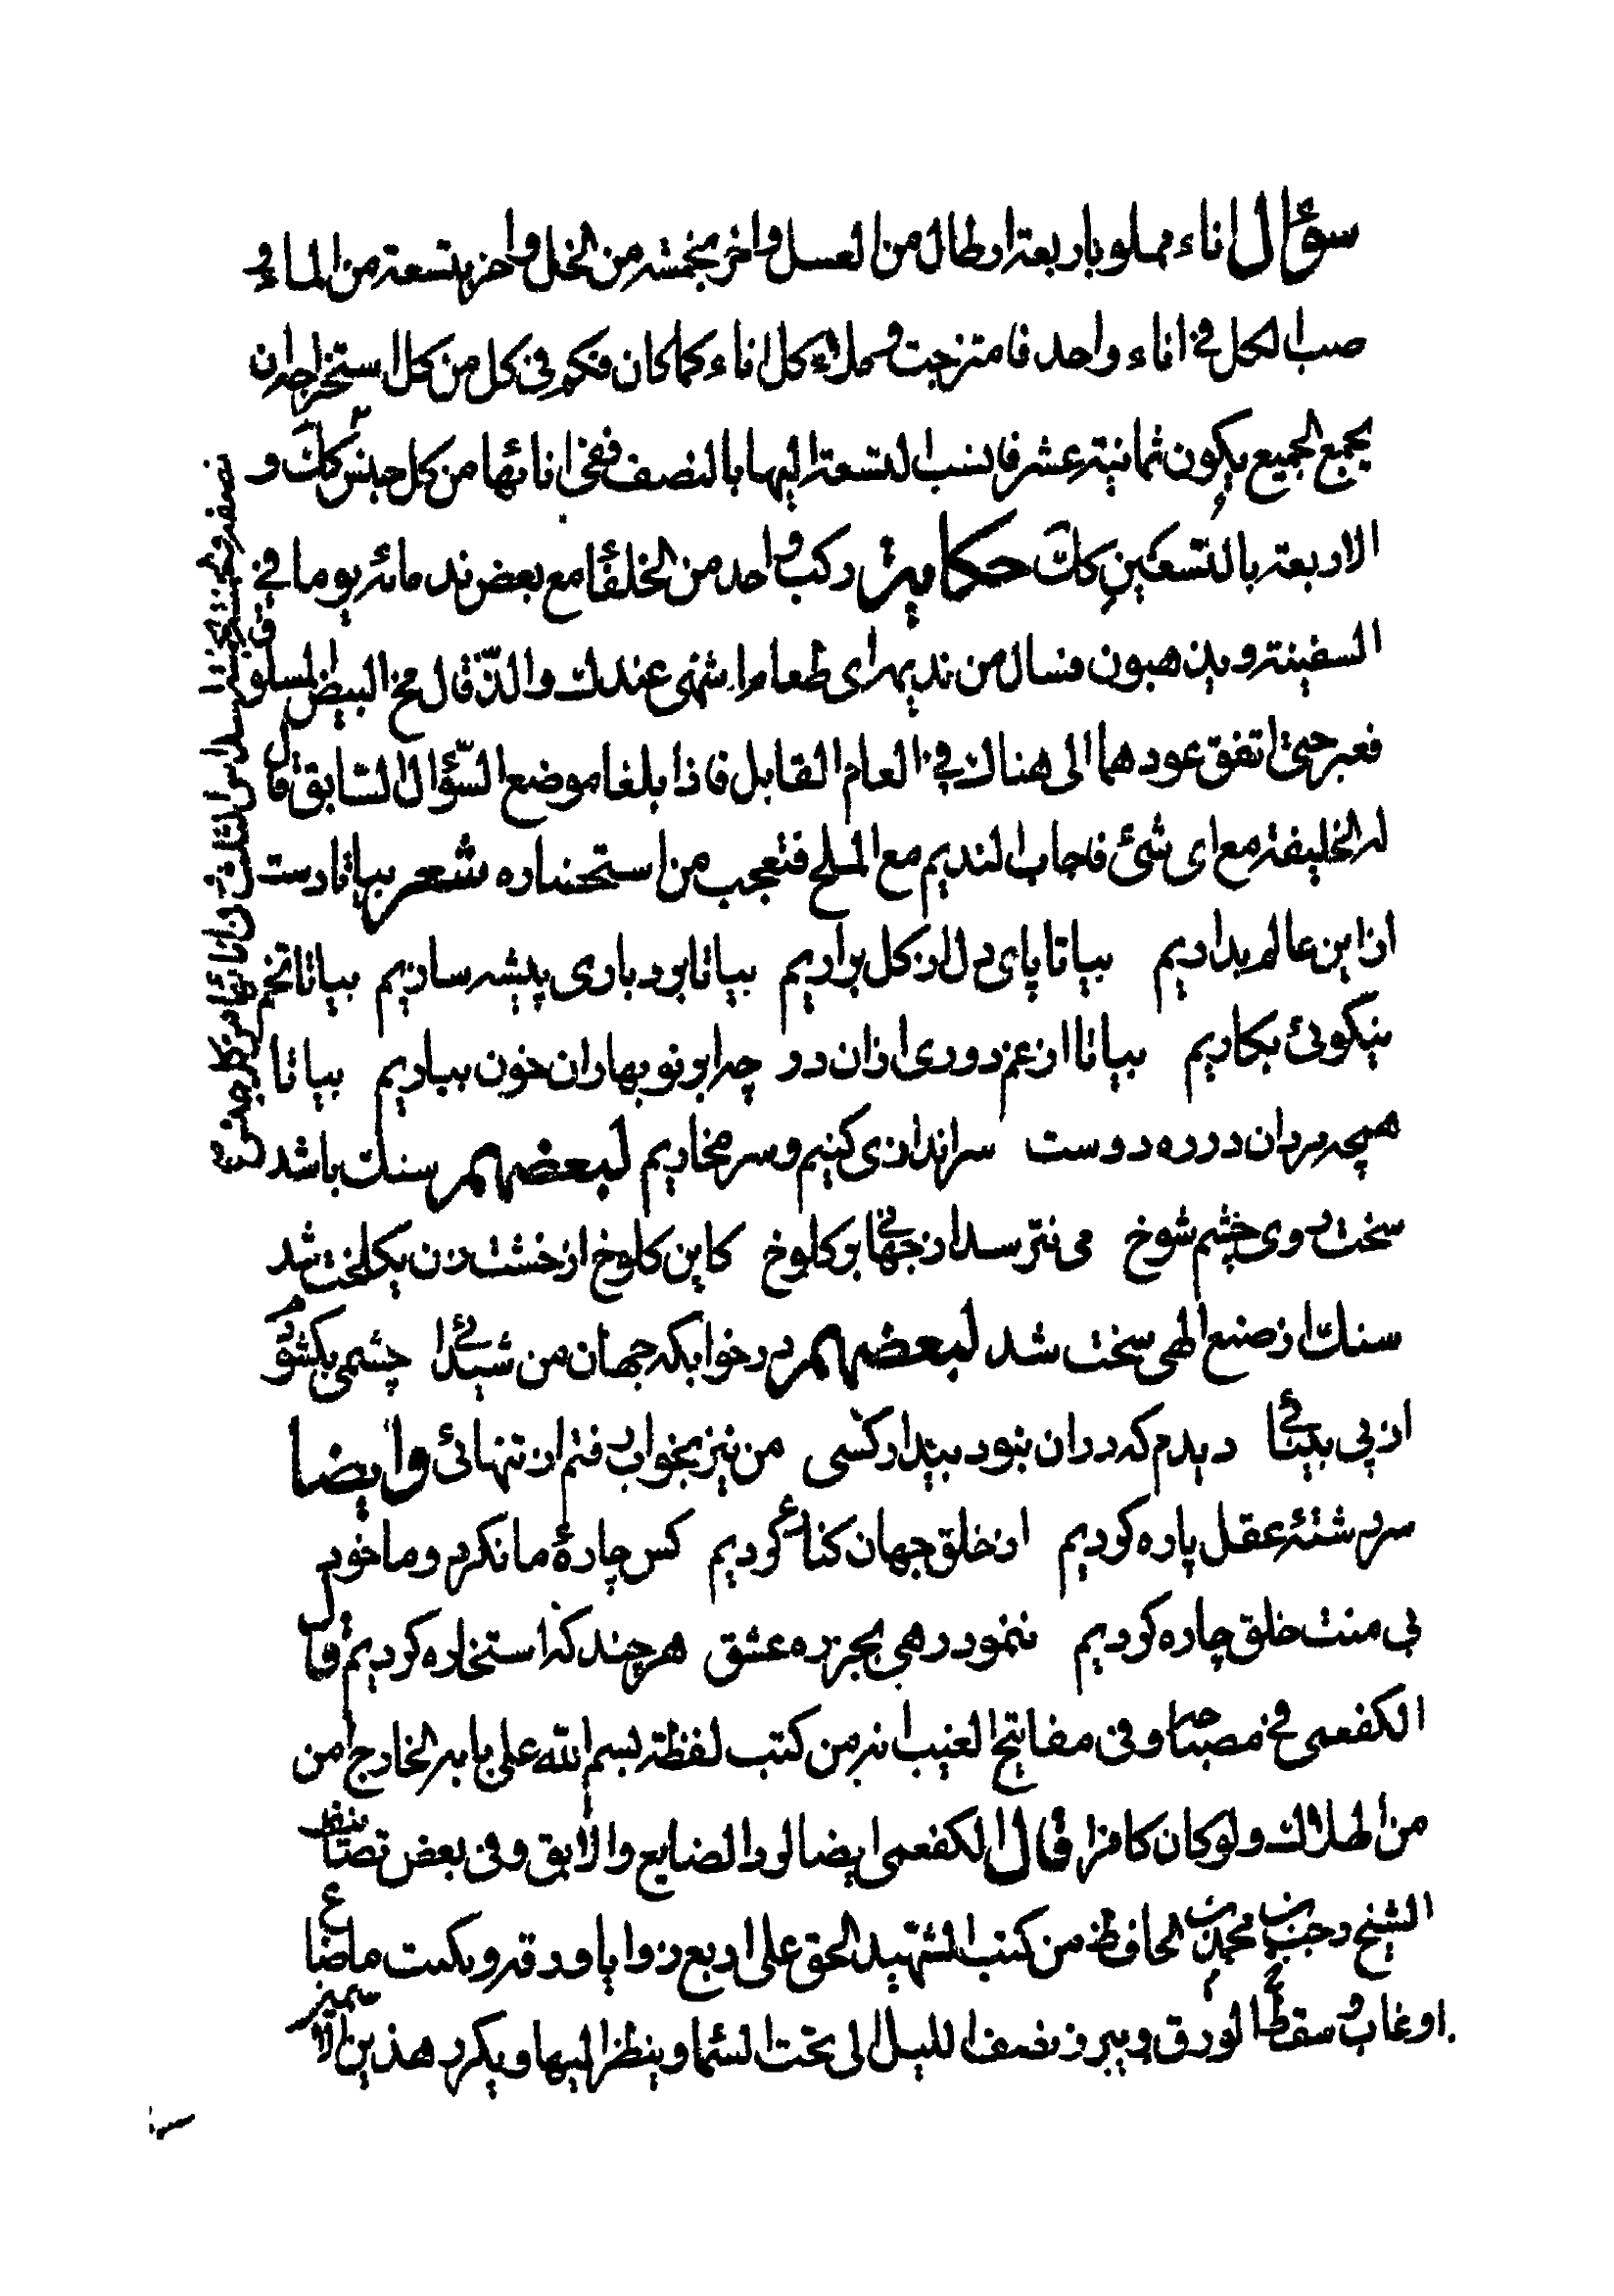 سؤال اناء مملو باربعة ارطال من العسل واخر بخمسة من الخل واخر بتسعة من الماء و
صب الكل فى اناء واحد فامتزجت وملاء كل اناء كما كان فكم فى كل من كل استخراجه ان
يجمع الجميع يكون ثمانية عشر فانسب التسعة اليها بالنصف ففى انائها من كل جنس كك و
الاربعة بالتسعين كك حكاية ركب واحد من الخلفاء مع بعض ندمائه يوما فى
السفينة وين هبون فسال من نديمه اى طعام اشهى عندك والذ قال مخ البيض المسلوق
فعبر حتى اتفق عودهما الى هناك فى العام القابل فاذا بلغا موضع السؤال السابق قال
له الخليفة مع اى شئ فاجاب النديم مع الملح فتعجب من استحضاره شعر بيا تا دست
ازاين عالم بداريم بيا تا پاى دل از كل براريم بيا تا بردبارى پيشه سازيم بيا تا تخم
نيكوئى بكاريم بيا تا از غم دورى ازان در چه ابر نوبهاران خون بباريم بيا تا
همچه مردان در ره دوست سراندازى كنيم و سر نخاريم لبعضهم سنك باشد
سخت روى چشم شوخ مى نترسد از جهانى بر كلوخ كاين كلوخ از خشت زن يكلخت شد
سنك از صنع الهى سخت شد لبعضهم در خوابكه جهان من شيدائى چشمى بكشودم
از پى بينائى ديدم كه دران نبود بيدار كسى من نيز بخواب رفتم از تنهائى وايضا
سررشتهٔ عقل پاره كرديم از خلق جهان كناره كرديم كس چارهٔ ما نكرد و ما خود
بى منت خلق چاره كرديم ننمود رهى بجز ره عشق هر چند كه استخاره كرديم قال
الكفعمى فى مصباحه وفى مفاتيح الغيب انه من كتب لفظة بسم الله على بابه الخارج امن
من الهلاك ولو كان كافرا قال الكفعمى ايضا لرد الضايع والابق وفى بعض تصانيف
الشيخ رجب بن محمد بن الحافظ من كتب الشهيد الحق على اربع زوايا ورقة ويكتب ماضاع
اوغاب وسقط الورق ويبرز نصف الليل الى تحت السماء وينظر اليها ويكرر هذين الاسمين